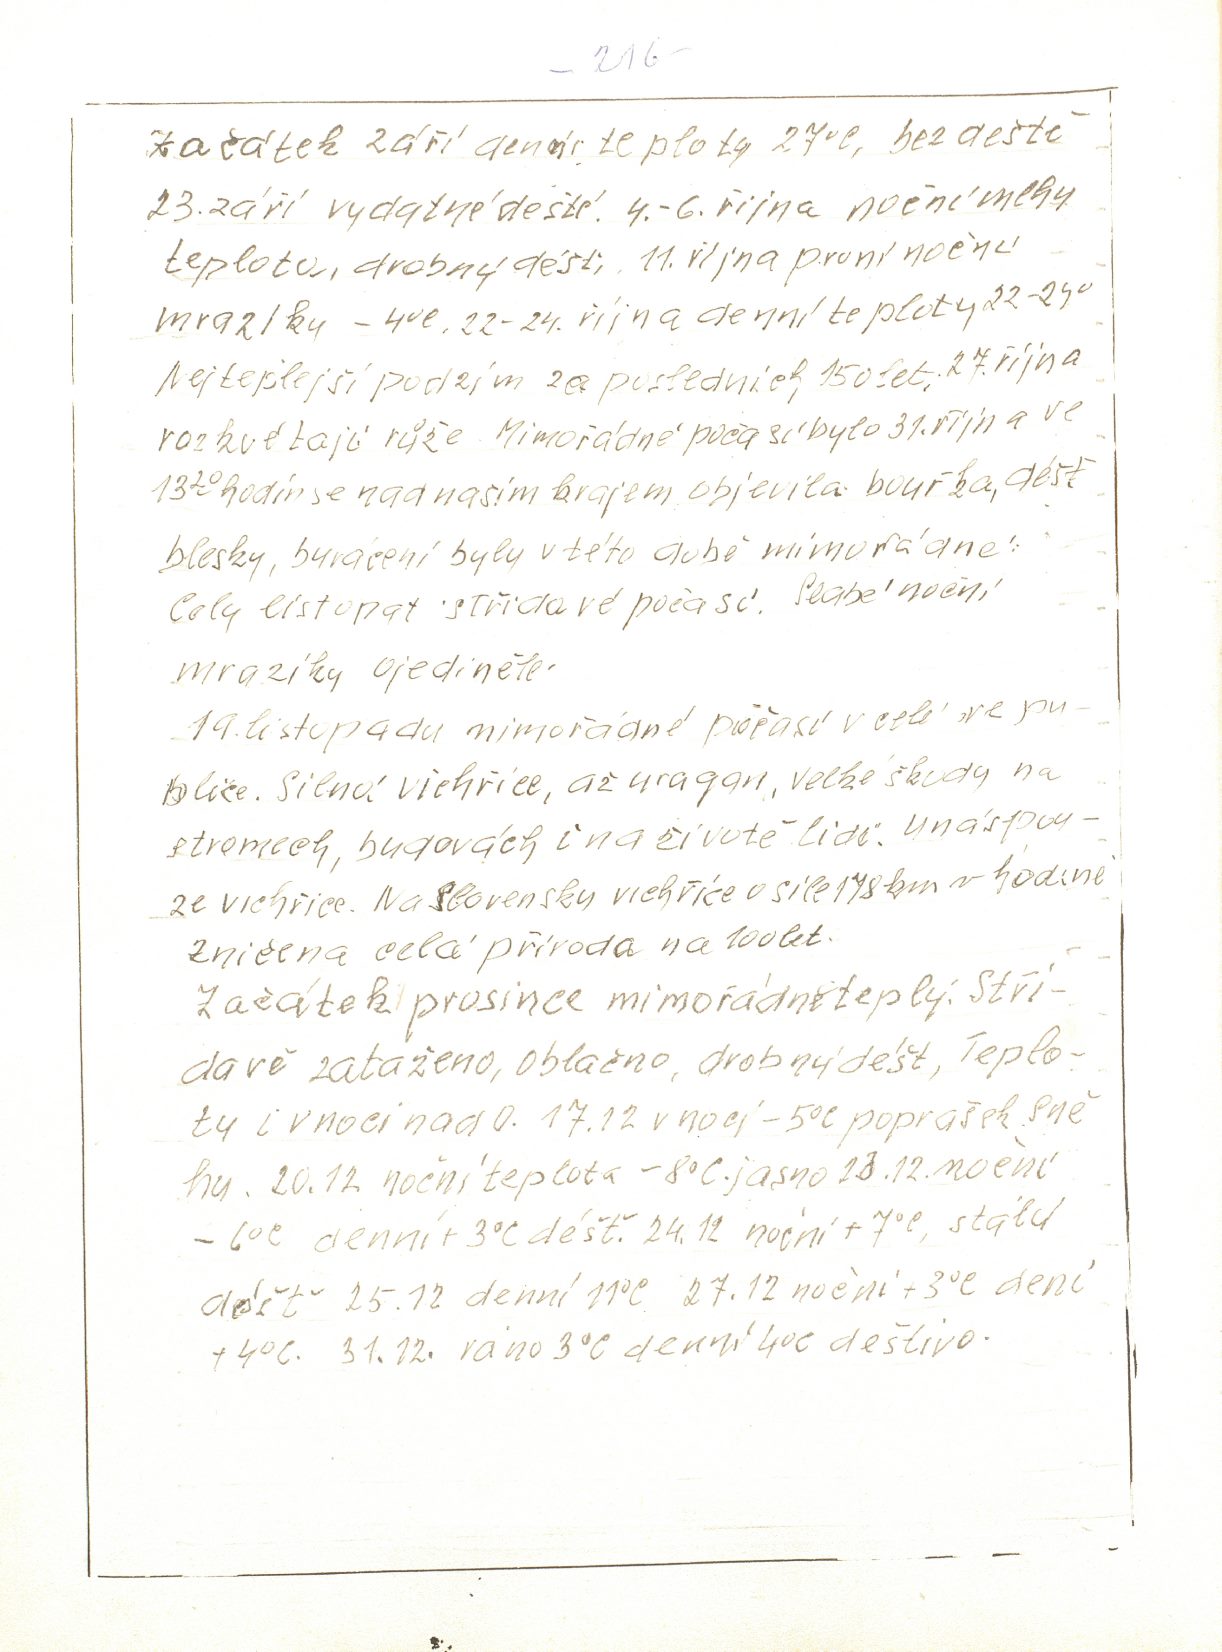 - 216 -
Začátek září denní teploty 27°C, bez deště
23. září vydatné deště. 4.-6. října noční mlhy
teplota, drobný déšť, 11. října první noční
mrazíky -4°C. 22-24. října denní teploty 22-24°
Nejteplejší podzim za posledních 150 let, 27. října
rozkvétají růže. Mimořádné počasí bylo 31. října ve
13 hodin se nad našim krajem objevila bouřka, déšť
blesky, burácení byly v této době mimořádné.
Celý listopat střídavé počasí. Slabé noční
mrazíky ojediněle.
19. listopadu mimořádné počasí v celé repu-
blice. Silná vichřice, až uragan, velké škody na
stromech, budovách i na životě lidí. U nás pou-
ze vichřice. Na Slovensku vichřice o síle 178 km v hodině
zničena celá příroda na 100 let.
Začátek prosince mimořádně teplý. Stří-
davě zataženo, oblačno, drobný déšť, Teplo-
ty i v noci nad 0. 17.12 v noci -5°C poprašek sně
hu. 20.12 noční teplota -8°C. jasno 23.12. noční
-6°C denní +3°C déšť. 24.12 noční +7°C, stálý
déšť 25.12 denní 11°C 27.12 noční +3°C dení
+4°C. 31.12. ráno 3°C denní 4°C deštivo.